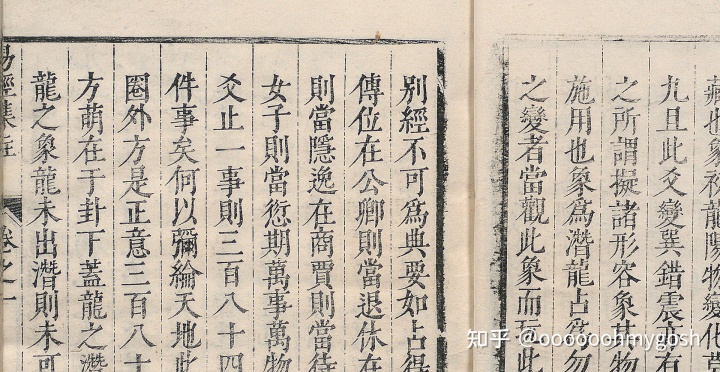 藏也象初龍陽物變化莫
九且此爻變巽錯震亦有
之所謂擬諸形容象其物
施用也象爲潛龍占爲勿
之變者當觀此象而玩此
別經不可爲典要如占得
傳位在公卿則當退休在
則當隱逸在商賈則當待
女子則當愆期萬事萬物
爻止一事則三百八十四
件事矣何以彌綸天地此
圈外方是正意三百八十
方萌在于卦下蓋龍之潛
龍之象龍未出潛則未可
易經集註 卷之一
知乎 @ooooooohmygosh